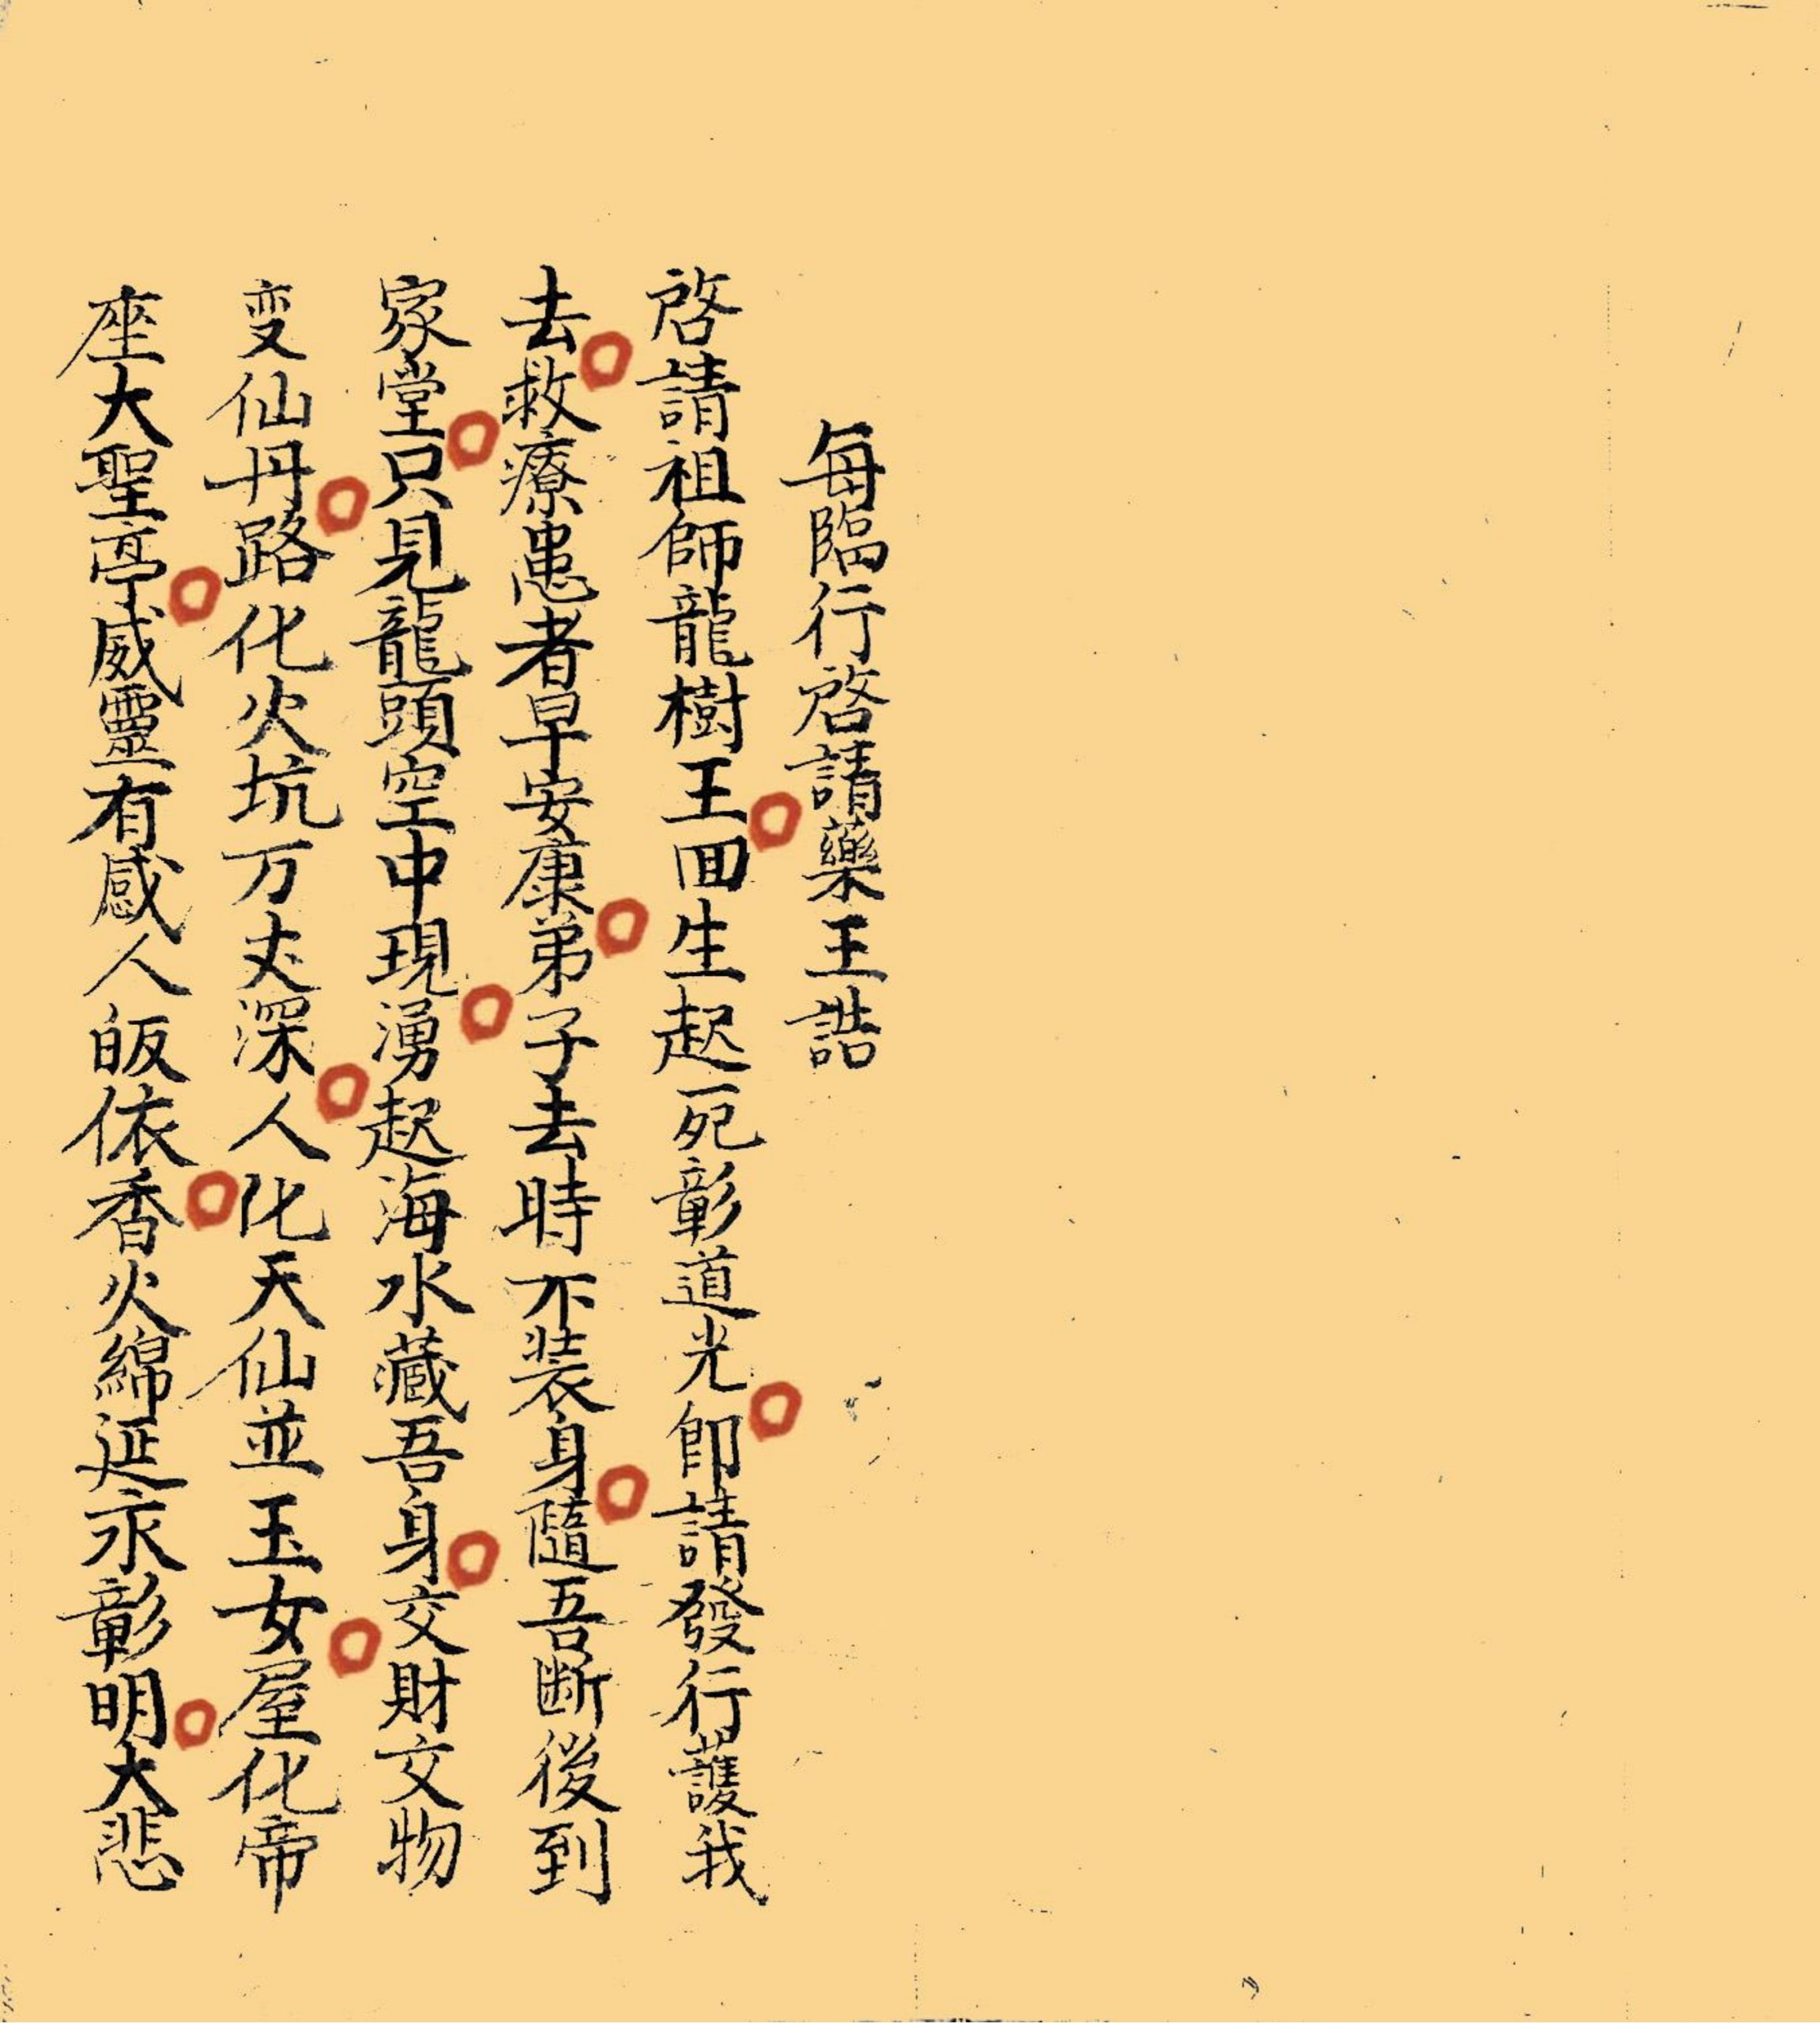 每臨行啓請藥王誥
啓請祖師龍樹王回生起死彰道光卽請發行護我
去救療患者早安康弟子去時不装身隨吾断後到
家堂只見龍頭空中現湧起海水藏吾身交財文物
变仙丹路化火坑万丈深人化天仙並玉女屋化帝
座大聖亭威靈有感人皈依香火綿延永彰明大悲